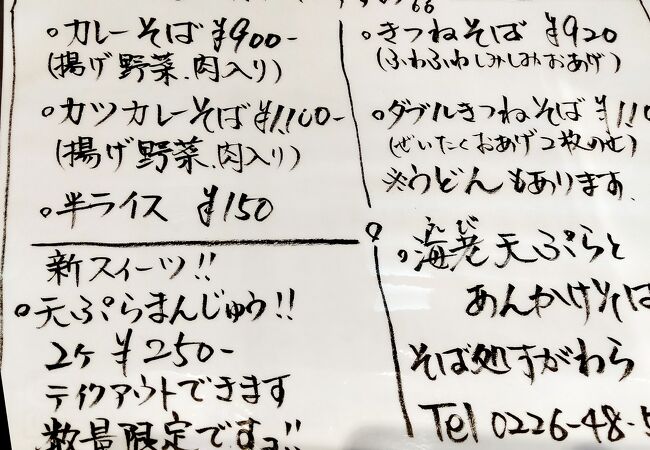 。カレーそば ¥900-
(揚げ野菜、肉入り)
。カツカレーそば ¥1,100-
(揚げ野菜、肉入り)
。半ライス ¥150
新スィーツ!!
。天ぷらまんじゅう!!
2ケ ¥250-
テイクアウトできます
数量限定ですよ!!
。きつねそば ¥920
(ふわふわしみしみおあげ)
。ダブルきつねそば ¥110
(ぜいたくおあげ2枚のせ)
※うどんもあります。
。海老天ぷらと
えび
あんかけそば
そば処すがわら
Tel 0226-48-5